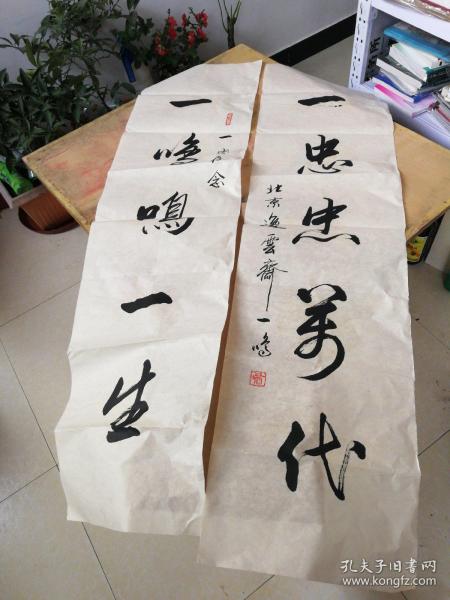 一忠忠万代
北京逸雲齋一鳴
一唤鳴一生
孔夫子旧书网
www.kongfz.com